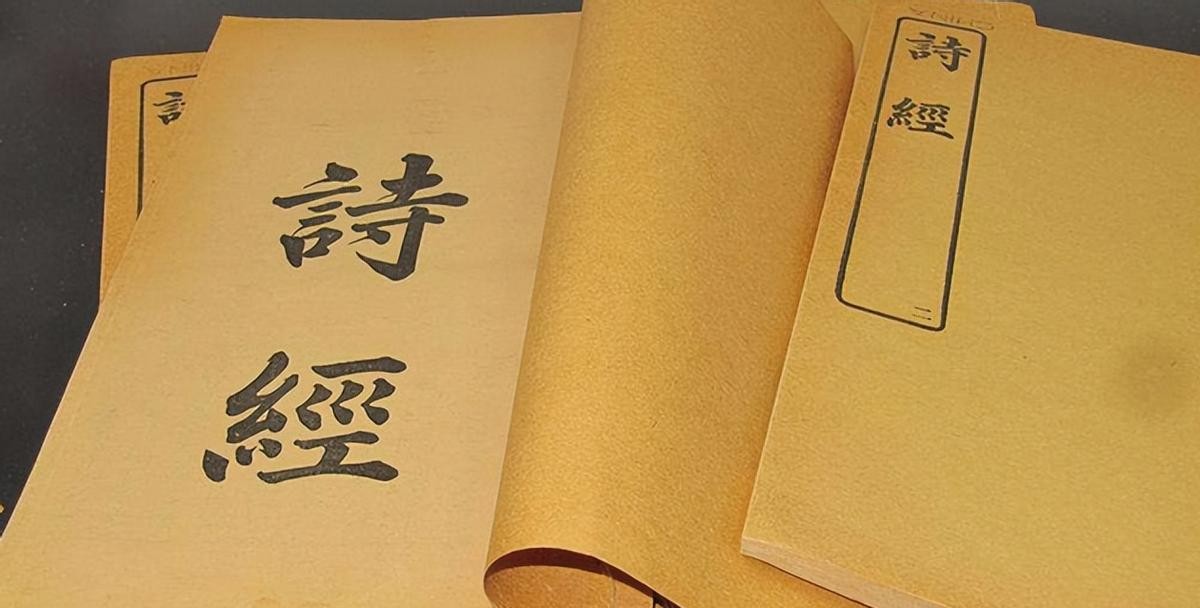 詩經
詩經
二
詩
CHINA